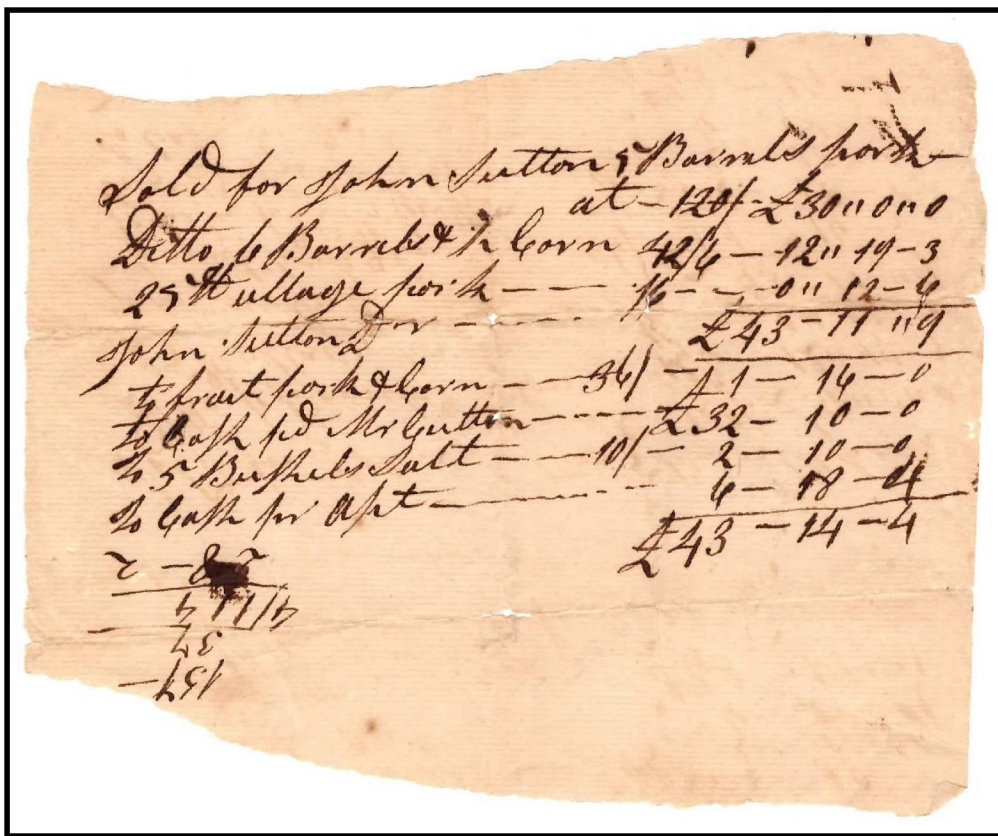 Sold for John Sutton 5 Barrels pork
at - 120/- £30"0"0
Ditto 6 Barrels & ½ Corn 42/6 - 12" 19-3
25 lb ullage pork - - - 16 - - 0" 12-6
£43-11"9
John Sutton Dr - - - -
to frait pork & Corn - - 36/ - 1 - 16 - 0
to Cash pd Mr Cutton - - - - £32 - 10 - 0
to 5 Bushels Salt - - - 10/ - 2 - 10 - 0
to Cash pr - - - - 6 - 18 - 4
£43 - 14 - 4